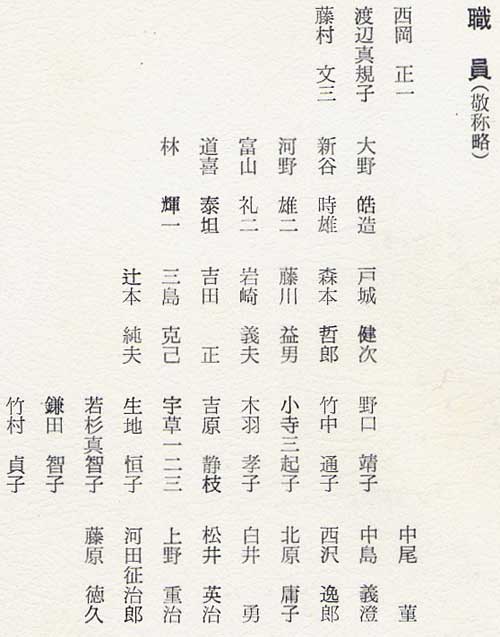 職員(敬称略)
西岡 正一
渡辺真規子
藤村 文三
大野 皓造
新谷 時雄
河野 雄二
富山 礼二
道喜 泰坦
林 輝一
戸城 健次
森本 哲郎
藤川 益男
岩崎 義夫
吉田 正
三島 克己
辻本 純夫
野口 靖子
竹中 通子
小寺三起子
木羽 孝子
吉原 静枝
宇草一二三
生地 恒子
若杉真智子
鎌田 智子
竹村 貞子
中尾 菫
中島 義澄
西沢 逸郎
北原 庸子
白井 勇
松井 英治
上野 重治
河田征治郎
藤原 徳久